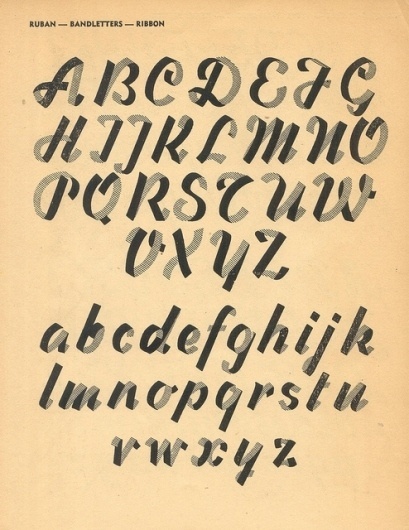 RUBAN — BANDLETTERS — RIBBON
ABCDEFG
HIJKLMNO
PQRSTUW
VXYZ
abcdefghijk
lmnopqrstu
vwxyz